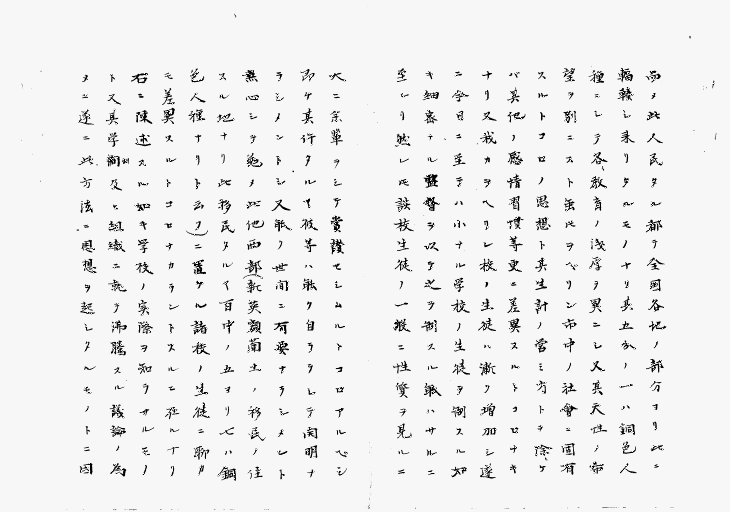 而メ此人民タル都テ全國各地ノ部分ヨリ此ニ
輻輳シ来リタルモノナリ其五分ノ一ハ銅色人
種ニシテ各教育ノ浅厚ヲ異ニシ又其天性ノ希
望ヲ別ニスト雖𪜈ヲベリン市中ノ社會ニ固有
スルトコロノ思想ト其生計ノ営ミ方トヲ除ケ
バ其他ノ感情習慣等更ニ差異スルトコロナキ
ナリ又我カヲヘリレ校ノ生徒ハ漸ク増加シ遂
ニ今日ニ至テハ小ナル学校ノ生徒ヲ制スル如
キ細密ナル監督ヲ以テ之ヲ制スル能ハサルニ
至レリ然レ𪜈該校生徒ノ一般ニ性質ヲ見ルニ
大ニ余輩ヲシテ賞讃セシムルトコロアルベシ
即ケ其許多ハ彼等ハ能ク自ラヲシテ開明ナ
ラシメントシ又能ノ世間ニ有要ナラシメント
熱心シテ勉メ此他西部（新英蘭土ノ移民ノ住
スル地ナリ此移民タルイ百中ノ五ヨリ七ハ銅
色人種ナリト云フ）ニ置ケル諸校ノ生徒ニ聊カ
モ差異スルトコロナカラントスルニ在ルナリ
右ニ陳述スル如キ学校ノ実際ヲ知ラサルモノ
ト又其学問及ヒ組織ニ就テ沸騰スル議論ノ為
メニ遂ニ此方法ニ思想ヲ起シタルモノトニ因